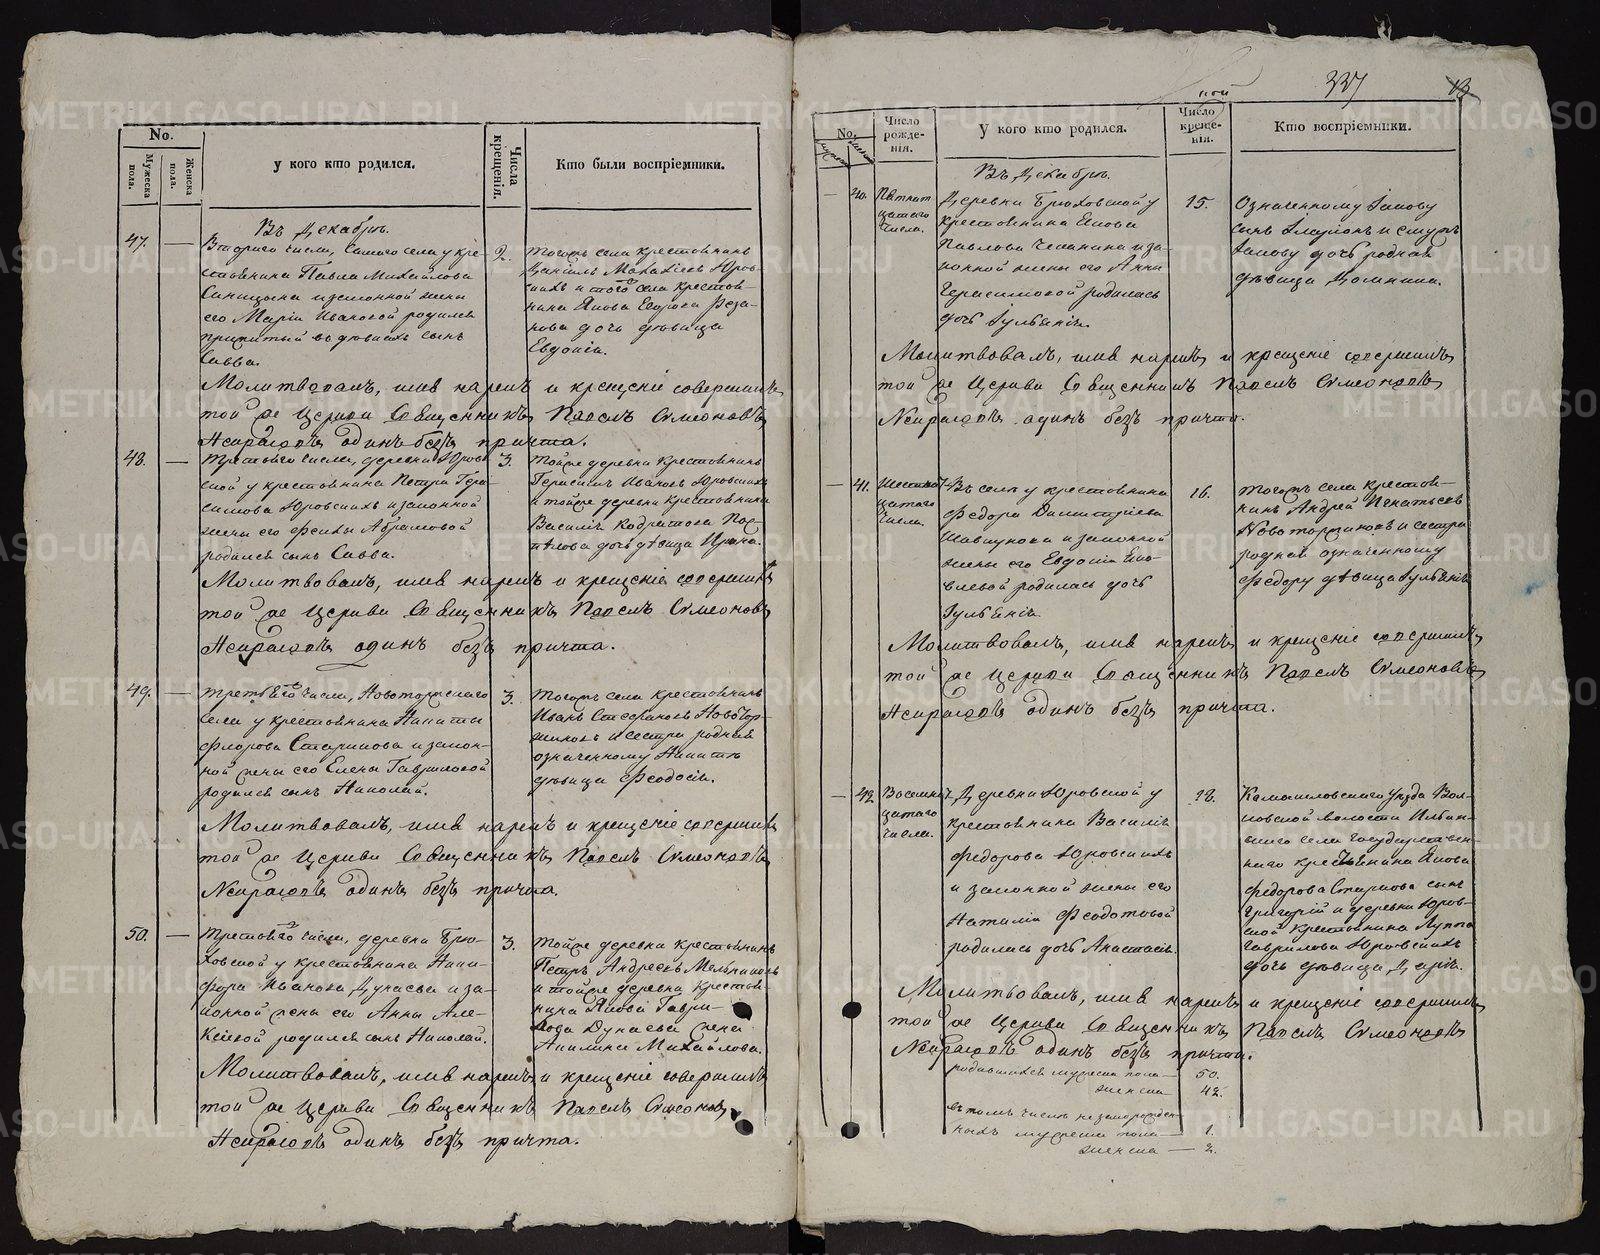 No.
Мужеска пола.
Женска пола.
у кого кто родился.
Числа крещенія.
Кто были воспріемники.
Въ Декабрѣ.
47.
Втораго числа, Самаго села у кре-
стьянина Павла Михайлова
Синицына и законной жены
его Маріи Ивановой родился
сынъ
Савва.
2.
тогожъ села крестьянинъ
Даніилъ
и того села крестья-
нина Якова
дочь дѣвица
Евдокія.
Молитвовалъ, имя нарекъ и крещеніе совершилъ
той же Церкви Священникъ Павелъ Симеоновъ
одинъ безъ причта.
48.
третьяго числа, деревни Юров-
ской у крестьянина Петра Гера-
симова Юровскихъ и законной
жены его Феклы Абрамовой
родился сынъ Савва.
3.
тойже деревни крестьянинъ
Герасимъ Ивановъ Юровскихъ
и тойже деревни крестьянина
Василія
дочь дѣвица Ирина.
Молитвовалъ, имя нарекъ и крещеніе совершилъ
той же Церкви Священникъ Павелъ Симеоновъ
одинъ безъ причта.
49.
третьяго числа, Новоторжскаго
села у крестьянина Никиты
Флорова Старикова и закон-
ной жены его Елены Гавриловой
родился сынъ Николай.
3.
тогожъ села крестьянинъ
Иванъ Стефановъ Новотор-
жиловъ и сестра родная
означенному Никитѣ
дѣвица Феодосія.
Молитвовалъ, имя нарекъ и крещеніе совершилъ
той же Церкви Священникъ Павелъ Симеоновъ
одинъ безъ причта.
50.
третьяго числа, деревни Брю-
ховской у крестьянина Ники-
фора Иванова Дунаева и за-
конной жены его Анны Але-
ксѣевой родился сынъ Николай.
3.
тойже деревни крестьянинъ
Петръ Андреевъ Мельниковъ
и тойже деревни крестья-
нина Якова Гаври-
лова Дунаева жена
Акилина Михайлова.
Молитвовалъ, имя нарекъ и крещеніе совершилъ
той же Церкви Священникъ Павелъ Симеоновъ
одинъ безъ причта.
337
13
No.
Число рожде-
нія.
У кого кто родился.
Число креще-
нія.
Кто воспріемники.
Въ Декабрѣ.
40.
Пятнат
цатаго
числа.
Деревни Брюховской у
крестьянина Якова
Павлова Чепанина и за-
конной жены его Анны
Герасимовой родилась
дочь Iульянія.
15.
Означенному Iакову
сынъ Iларіонъ и ему жъ
Iакову дочь родная
дѣвица Домника.
Молитвовалъ, имя нарекъ и крещеніе совершилъ
той же Церкви Священникъ Павелъ Симеоновъ
одинъ безъ причта.
41.
Шестнат
цатаго
числа.
Въ селѣ у крестьянина
Федора Димитріева
Шавкунова и законной
жены его Евдокіи Яко-
влевой родилась дочь
Iульянія.
16.
тогожъ села крестья-
нинъ Андрей Игнатьевъ
Новоторжиловъ и сестра
родная означенному
Федору дѣвица Iульянія
Молитвовалъ, имя нарекъ и крещеніе совершилъ
той же Церкви Священникъ Павелъ Симеоновъ
одинъ безъ причта.
42.
Восемнат
цатаго
числа.
Деревни Юровской у
крестьянина Василія
Федорова Юровскихъ
и законной жены его
Наталіи Феодотовой
родилась дочь Анастасія.
18.
Камышловскаго Уѣзда Вол-
ковской волости Ильин-
скаго села Государствен-
наго крестьянина Якова
Федорова Старкова сынъ
Григорій и деревни Юров-
ской крестьянина Луппа
Гаврилова Юровскихъ
дочь дѣвица Дарія.
Молитвовалъ, имя нарекъ и крещеніе совершилъ
той же Церкви Священникъ Павелъ Симеоновъ
одинъ безъ причта.
родившихся мужска пола — 50.
женска — 42.
въ томъ числѣ незаконорожден-
ныхъ мужска пола — 1.
женска — 2.
METRIKI.GASO-URAL.RU